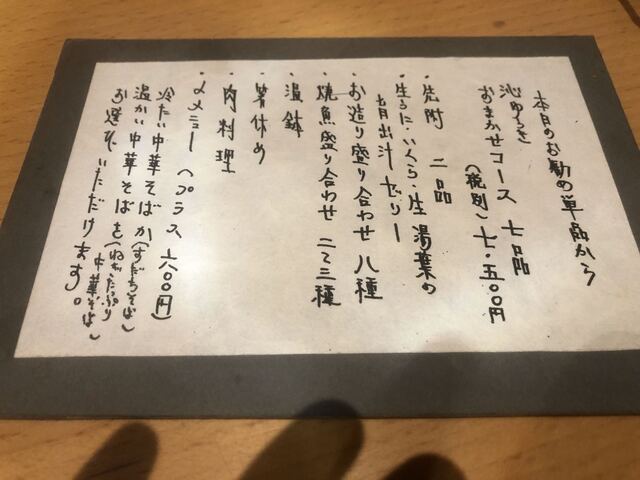 本日のお勧め単品から
おまかせコース 七品
(税別)七・五〇〇円
・先附 二品
・生うに・いくら・生湯葉の
旨出汁ゼリー
・お造り盛り合わせ 八種
・焼魚盛り合わせ 二〜三種
・温鉢
・箸休め
・肉料理
・〆メニュー(プラス 六〇〇円)
冷たい中華そばか(すだちそば)
温かい中華そばを(ねぎたっぷり中華そば)
お選びいただけます。